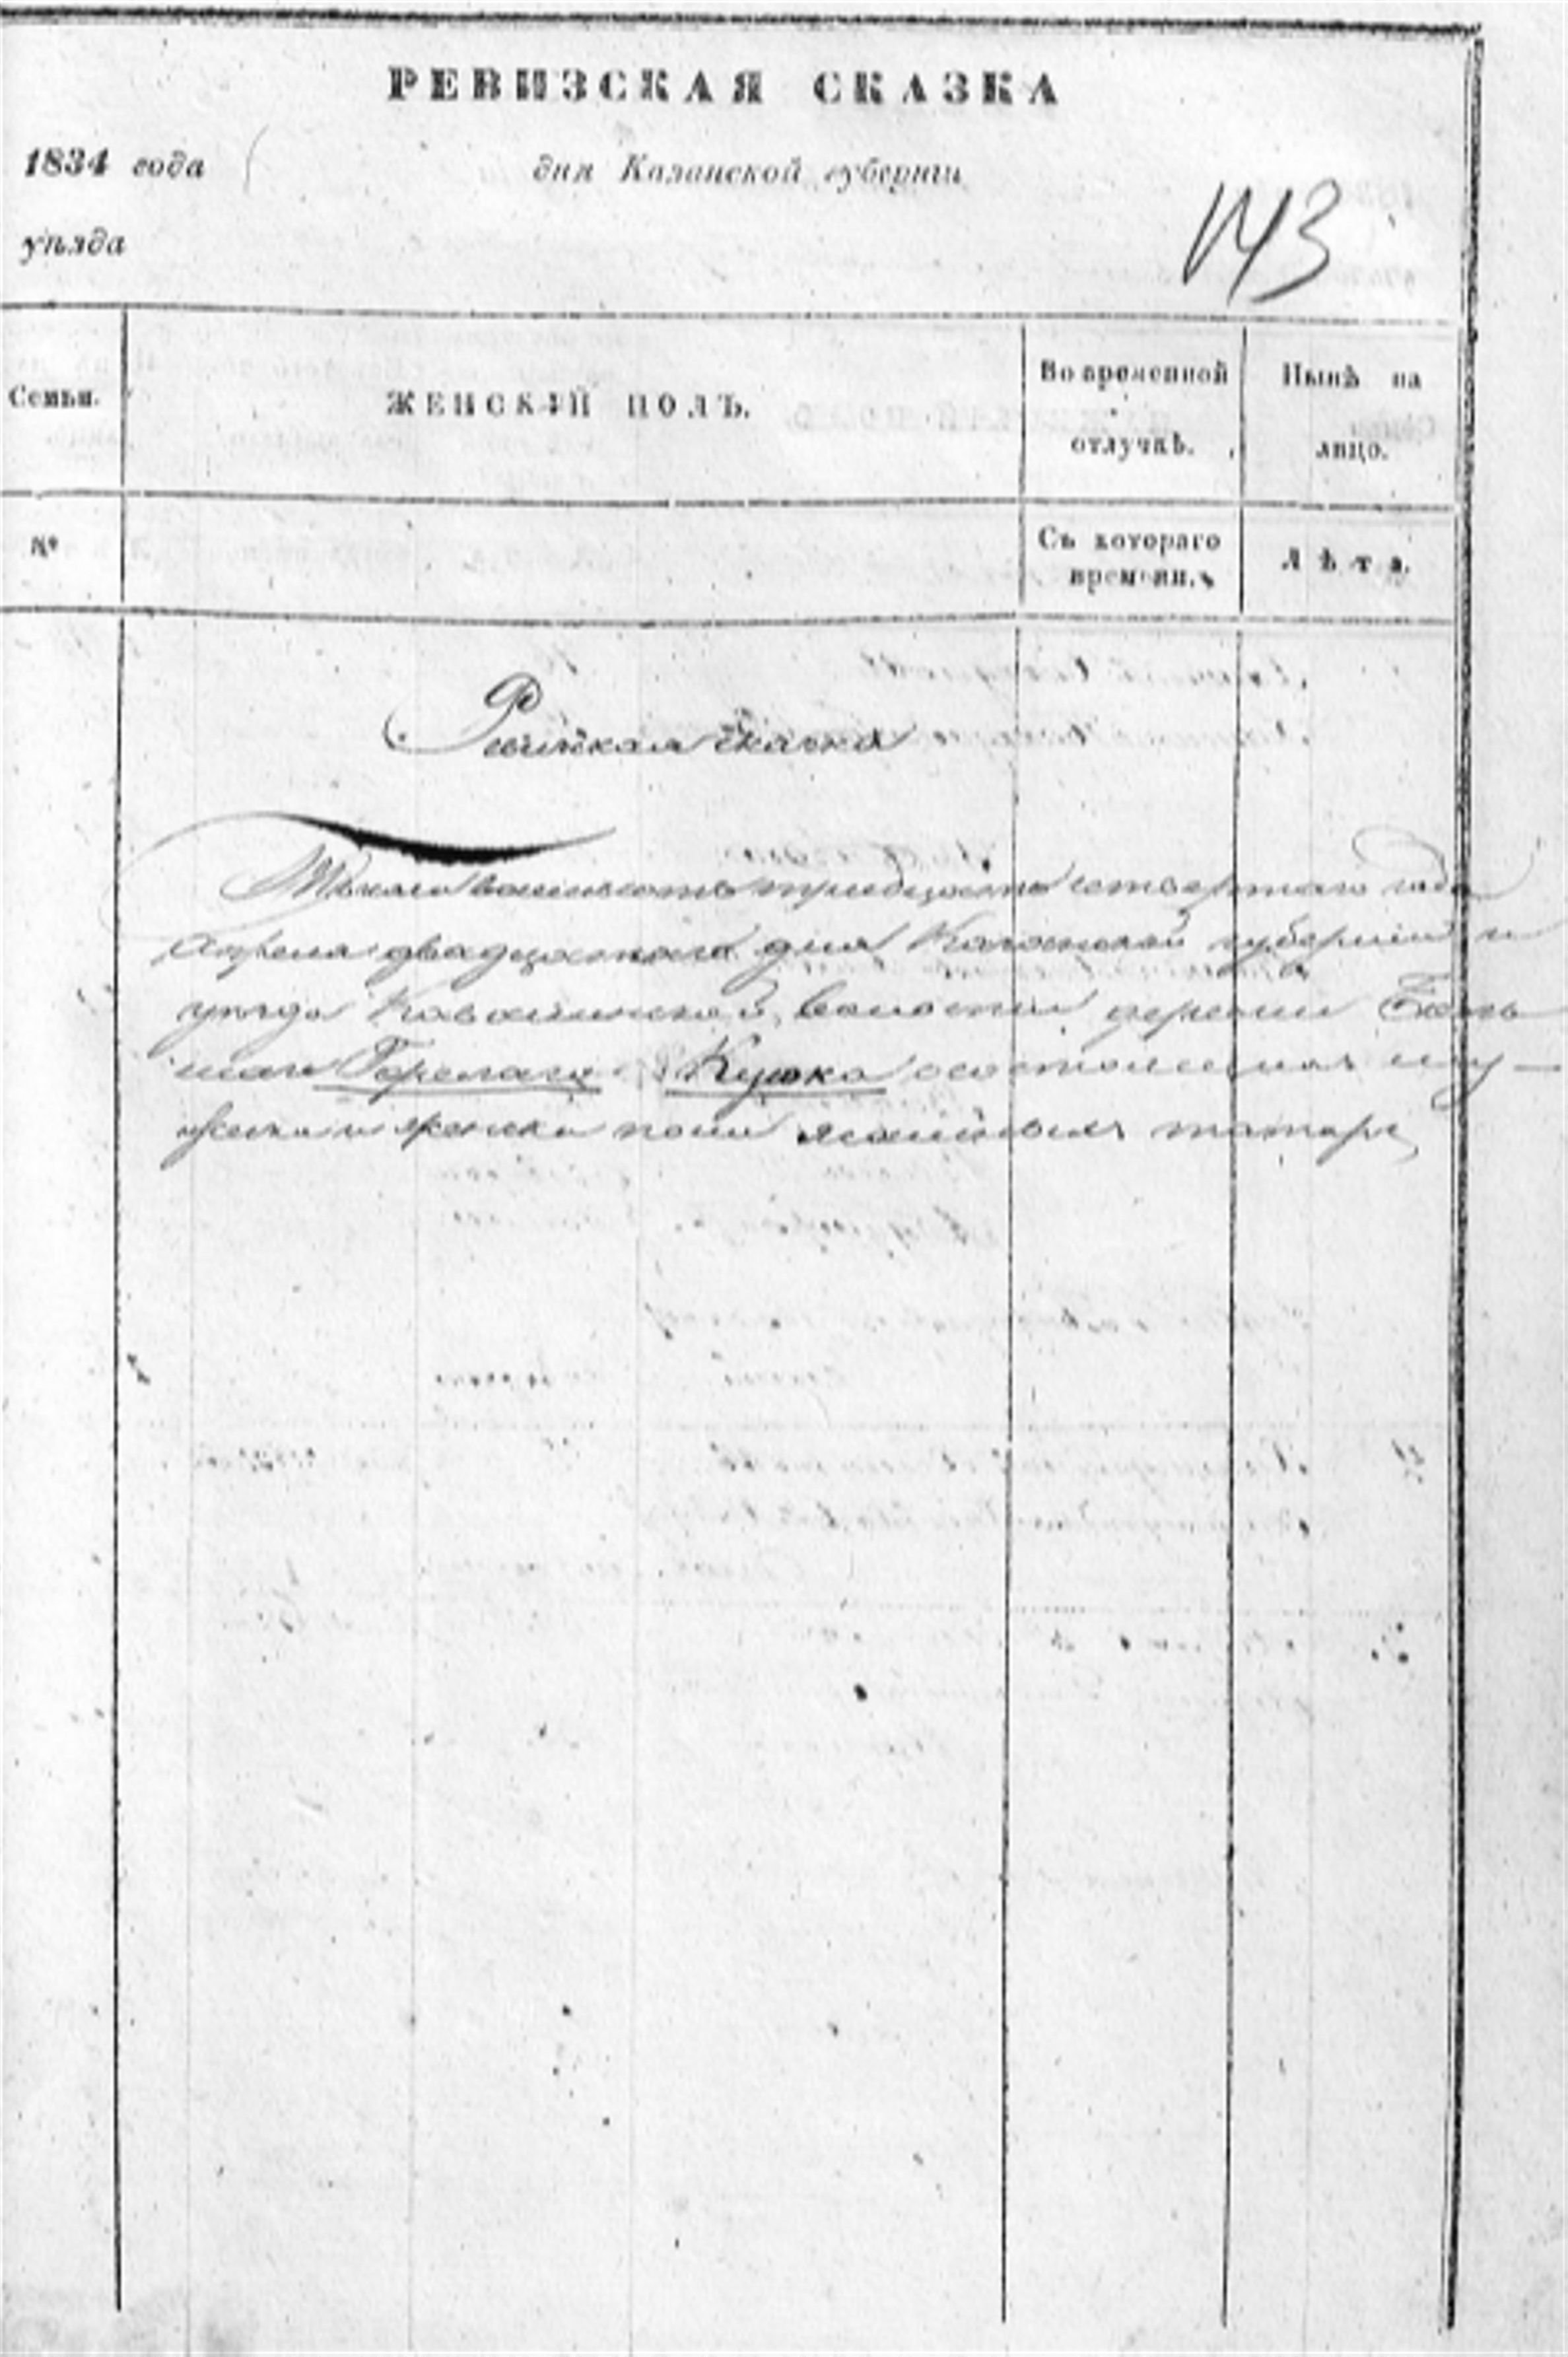 РЕВИЗСКАЯ СКАЗКА
1834 года дня Казанской губерніи
уѣзда
143
Семьи. ЖЕНСКІЙ ПОЛЪ. Во временной отлучкѣ. Нынѣ на лицо.
№ Съ котораго времени. Лѣта.
Ревизкая сказка
Тысяча восемьсотъ тридцать четвертаго года
Апреля двадцатаго дня Казанской губерніи и
уѣзда волости деревни Боль
шаго состоящихъ му
жеска и женска пола ясашныхъ татаръ